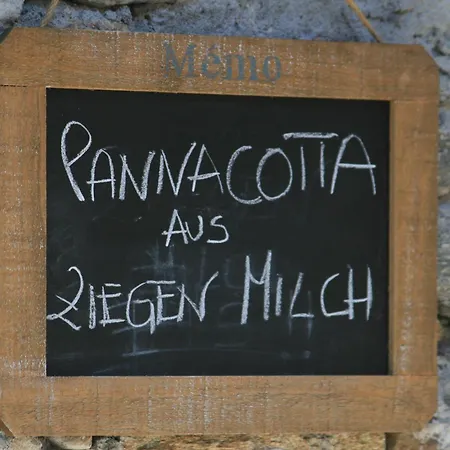 Mémo
PANNACOTTA
AUS
ZIEGEN MILCH